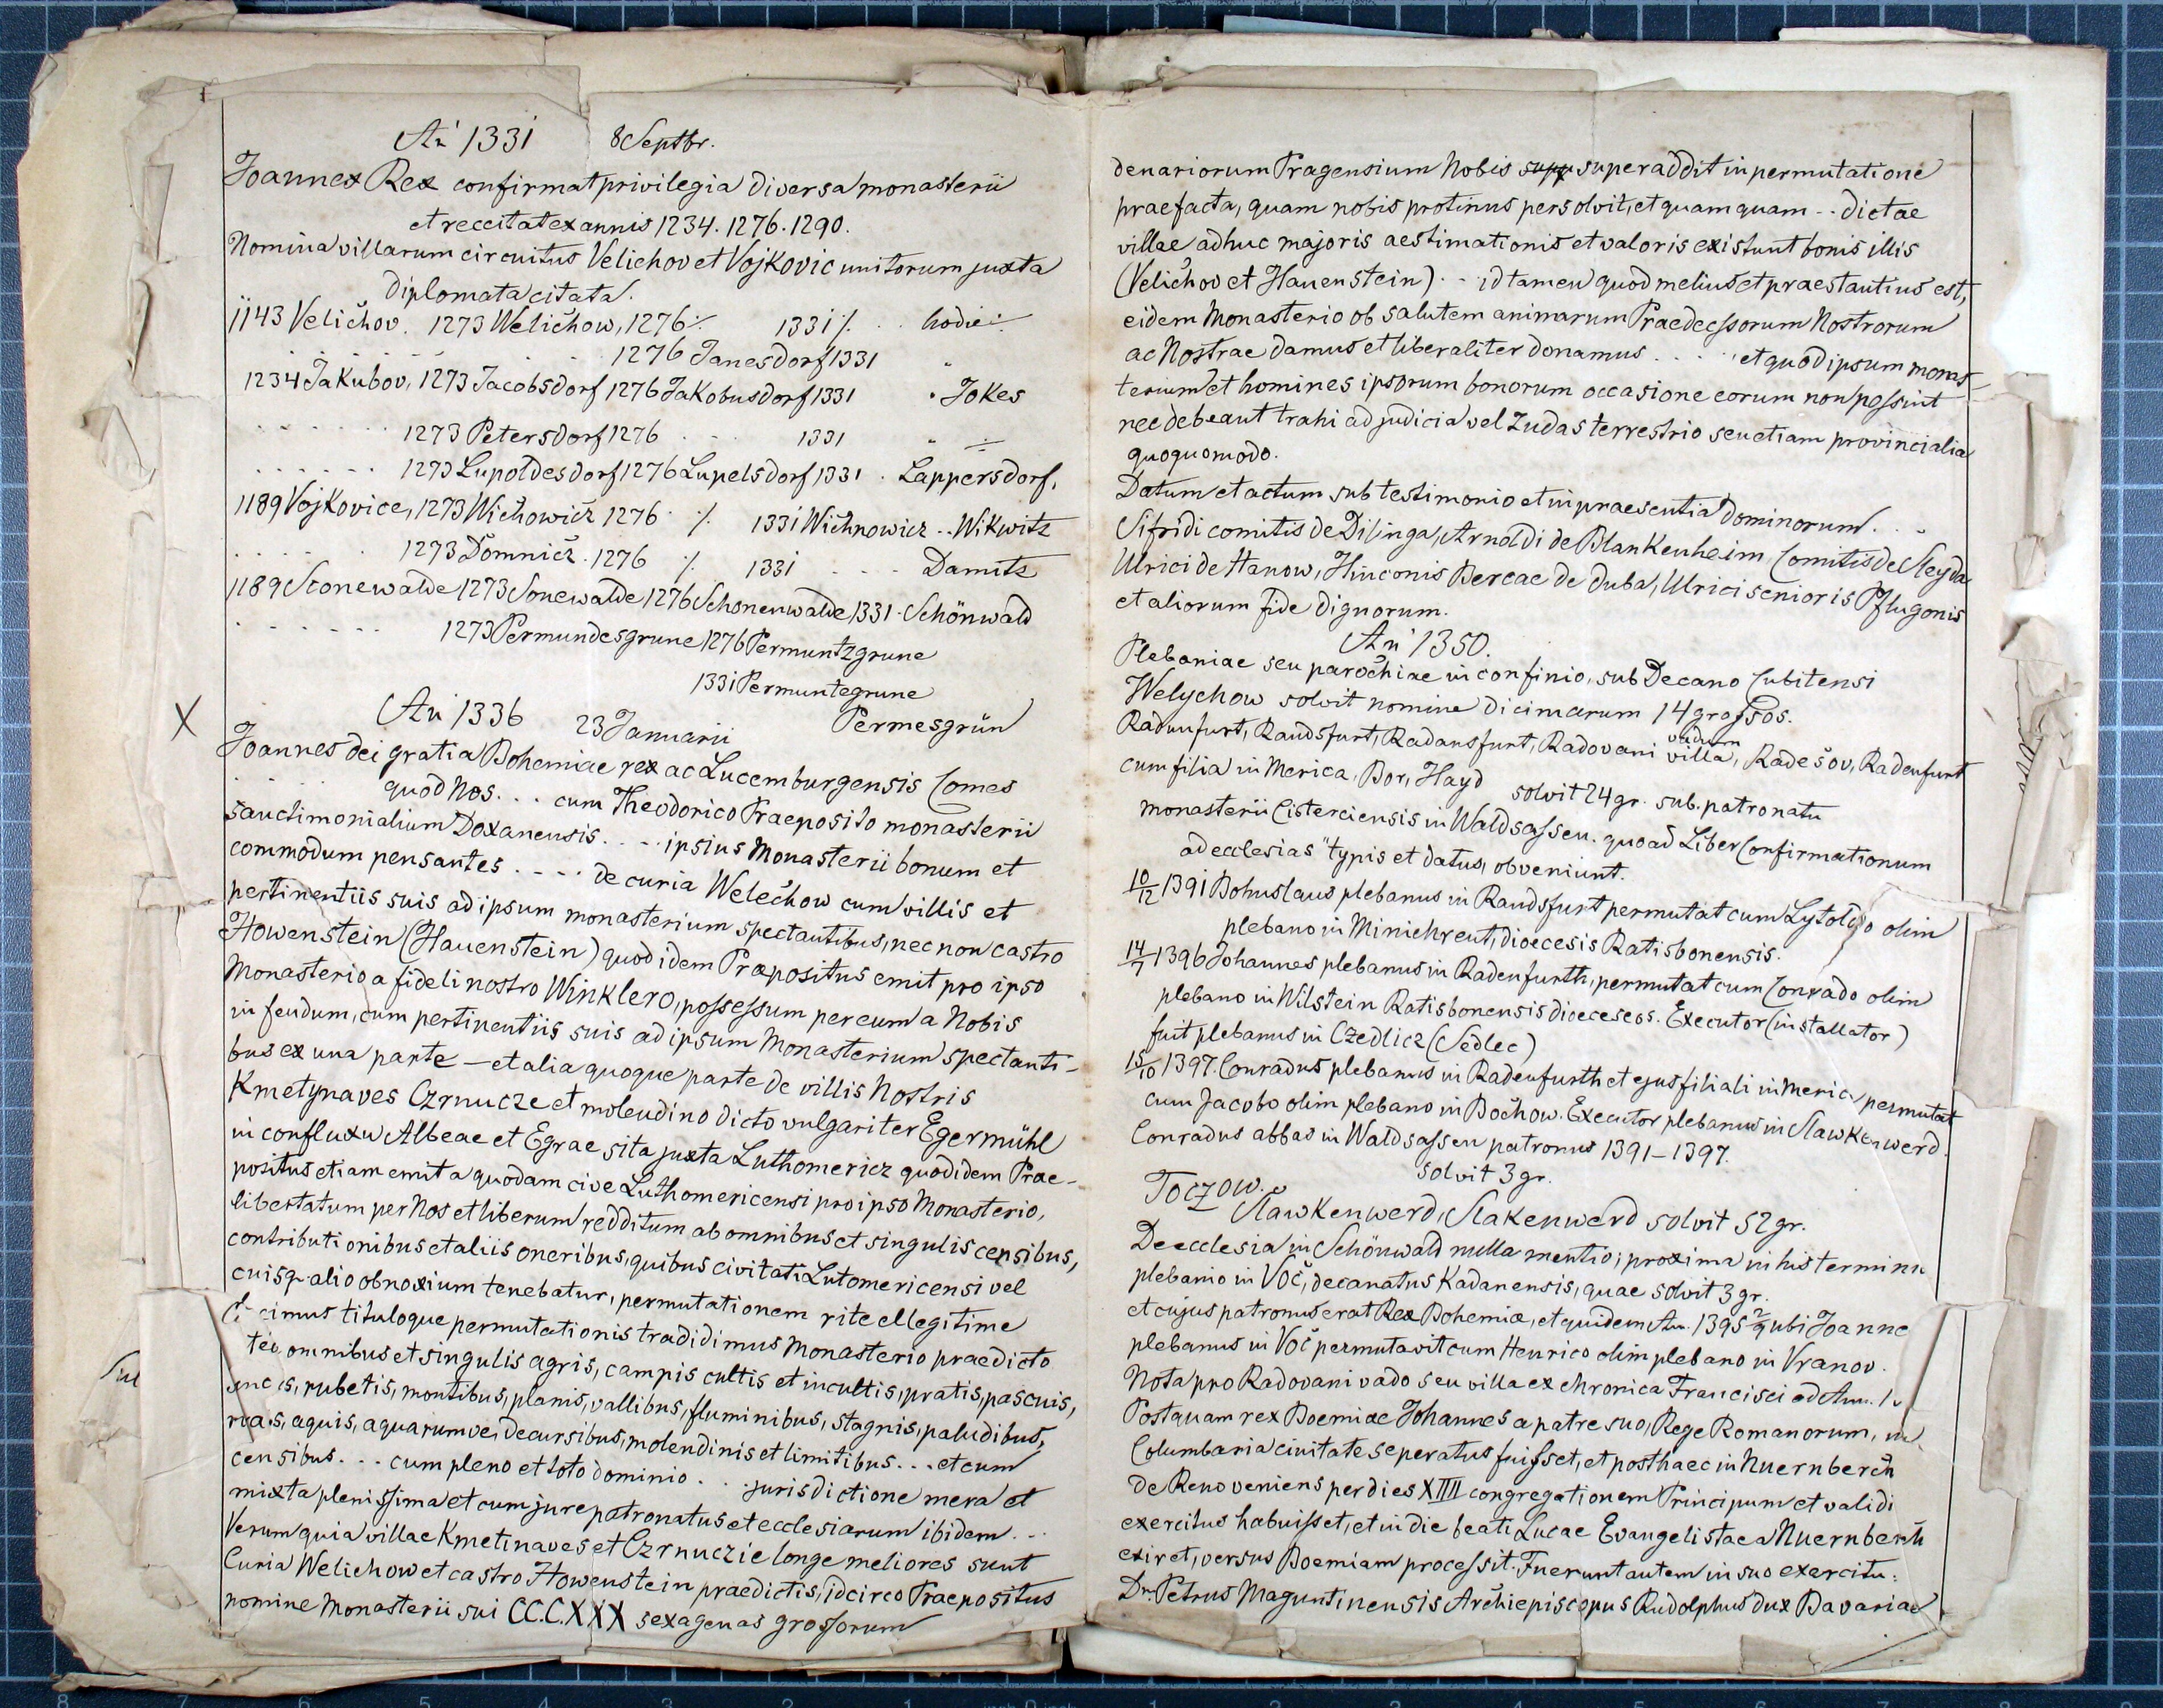 An 1331 8 Septbr.
Joannes Rex confirmat privilegia diversa monasterii
et reccitat ex annis 1234. 1276. 1290.
Nomina villarum circuitus Velichov et Vojkovic unitorum juxta
diplomata citata.
1143 Velichov. 1273 Welichow, 1276 ∕. 1331 ∕. . . hodie ∕.
. . . . . . 1276 Janesdorf 1331 "
1234 Jakubov, 1273 Jacobsdorf 1276 Jakobusdorf 1331 . Jokes
. . . . . . 1273 Petersdorf 1276 . . . 1331 " ∕.
. . . . . . 1273 Lupoldesdorf 1276 Lupelsdorf 1331 . Lappersdorf.
1189 Vojkovice, 1273 Wichowicz 1276 ∕. 1331 Wichnowicz . . Wikwitz
. . . . . . 1273 Domnicz . 1276 ∕. 1331 . . . Damitz
1189 Sconewalde 1273 Sonewalde 1276 Schonenwalde, 1331 . Schönwald
. . . . . . 1273 Permundesgrune, 1276 Permuntzgrune
1331 Permuntegrune
Permesgrün
X An 1336 23 Januarii
Joannes dei gratia Bohemiae rex ac Lucemburgensis Comes
. . quod Nos . . . cum Theodorico Praeposito monasterii
sanctimonialium Doxanensis . . . . ipsius Monasterii bonum et
commodum pensantes . . . . de curia Welechow cum villis et
pertinentiis suis ad ipsum monasterium spectantibus, nec non castro
Howenstein (Hauenstein) quod idem Præpositus emit pro ipso
Monasterio a fideli nostro Winklero, possessum per eum a Nobis
in feudum, cum pertinentiis suis ad ipsum Monasterium spectanti-
bus ex una parte – et alia quoque parte de villis Nostris
Kmetynaves Czrnucze et molendino dicto vulgariter Egermühl
in confluxu Albeae et Egrae sita juxta Luthomericz quod idem Prae-
positus etiam emit a quodam cive Luthomericensi pro ipso Monasterio,
libertatum per Nos et liberum redditum ab omnibus et singulis censibus,
contributionibus et aliis oneribus, quibus civitati Lutomericensi vel
cuisq. alio obnoxium tenebatur, permutationem rite et legitime
cimus tituloque permutationis tradidimus Monasterio praedicto
omnibus et singulis agris, campis cultis et incultis, pratis, pascuis,
rubetis, montibus, planis, vallibus, fluminibus, stagnis, paludibus,
aquis, aquarumve, decursibus, molendinis et limitibus . . . et cum
censibus . . . cum pleno et toto dominio . . . jurisdictione mera et
mixta plenissima et cum jure patronatus et ecclesiarum ibidem . . .
Verum quia villae Kmetinaves et Czrnuczie longe meliores sunt
Curia Welichow et castro Howenstein praedictis, idcirco Praepositus
nomine Monasterii sui CC.C.XXX sexagenas grossorum
denariorum Pragensium Nobis superaddit in permutatione
praefacta, quam nobis protinus persolvit, et quamquam . . dictae
villae adhuc majoris aestimationis et valoris existunt bonis illis
(Velichov et Hauenstein) . . id tamen quod melius et praestantius est,
eidem Monasterio ob salutem animarum Praedecssorum Nostrorum
ac Nostrae damus et liberaliter donamus . . . . et quod ipsum monas-
terium et homines ipsorum bonorum occasione eorum non possint
nec debeant trahi ad judicia vel Zudas terrestrio seu etiam provincialia
quoquomodo.
Datum et actum sub testimonio et in praesentia Dominorum . . .
Sifridi comitis de Dilinga, Arnoldi de Blankenheim Comitis de Sleyda
Ulrici de Hanow, Hinconis Bercae de Duba, Ulrici senioris Pflugonis
et aliorum fide dignorum.
An 1350.
Plebaniae seu parochiae in confinio, sub Decano Cubitensi
Welychow solvit nomine dicimarum 14 grossos.
vadum
Radunfurt, Randsfurt, Radansfurt, Radovani villa, Radešov, Radenfurt
cum filia in Merica, Bor, Hayd solvit 24 gr. sub. patronatu
monasterii Cisterciensis in Waldsassen. quoad Liber Confirmationum
ad ecclesias" typis et datus, obveniunt.
10/12 1391 Bohuslaus plebanus in Randsfurt permutat cum Lytoldo olim
plebano in Minichreut, dioecesis Ratisbonensis.
14/7 1396 Johannes plebanus in Radenfurth, permutat cum Conrado olim
plebano in Wilstein Ratisbonensis dioeceseos. Executor (installator)
fuit plebanus in Czedlicz (Sedlec)
15/10 1397. Conradus plebanus in Radenfurth et ejus filiali in Meric, permutat
cum Jacobo olim plebano in Bochow. Executor plebanus in Slawkenwerd.
Conradus abbas in Waldsassen patronus 1391–1397.
Toczow. solvit 3 gr.
Slawkenwerd, Slakenwerd solvit 52 gr.
De ecclesia in Schönwald nulla mentio; proxima in his termin
plebanio in Voč, decanatus Kadanensis, quae solvit 3 gr.
et cujus patronus erat Rex Bohemiæ, et quidem An. 1395 2/9 ubi Joanne
plebanus in Voč permutavit cum Henrico olim plebano in Vranov.
Nota pro Radovani vado seu villa ex chronica Francisci ad Ann. 1
Postquam rex Boemiae Johannes a patre suo, Rege Romanorum, in
Columbaria civitate seperatus fuisset, et posthaec in Nuernberch
de Reno veniens per dies XIIII congregationem Principum et validi
exercitus habuisset, et in die beati Lucae Evangelistae a Nuernberch
exiret, versus Boemiam processit. Fuerunt autem in suo exercitu:
Dn. Petrus Maguntinensis Archiepiscopus Rudolphus dux Bavariae